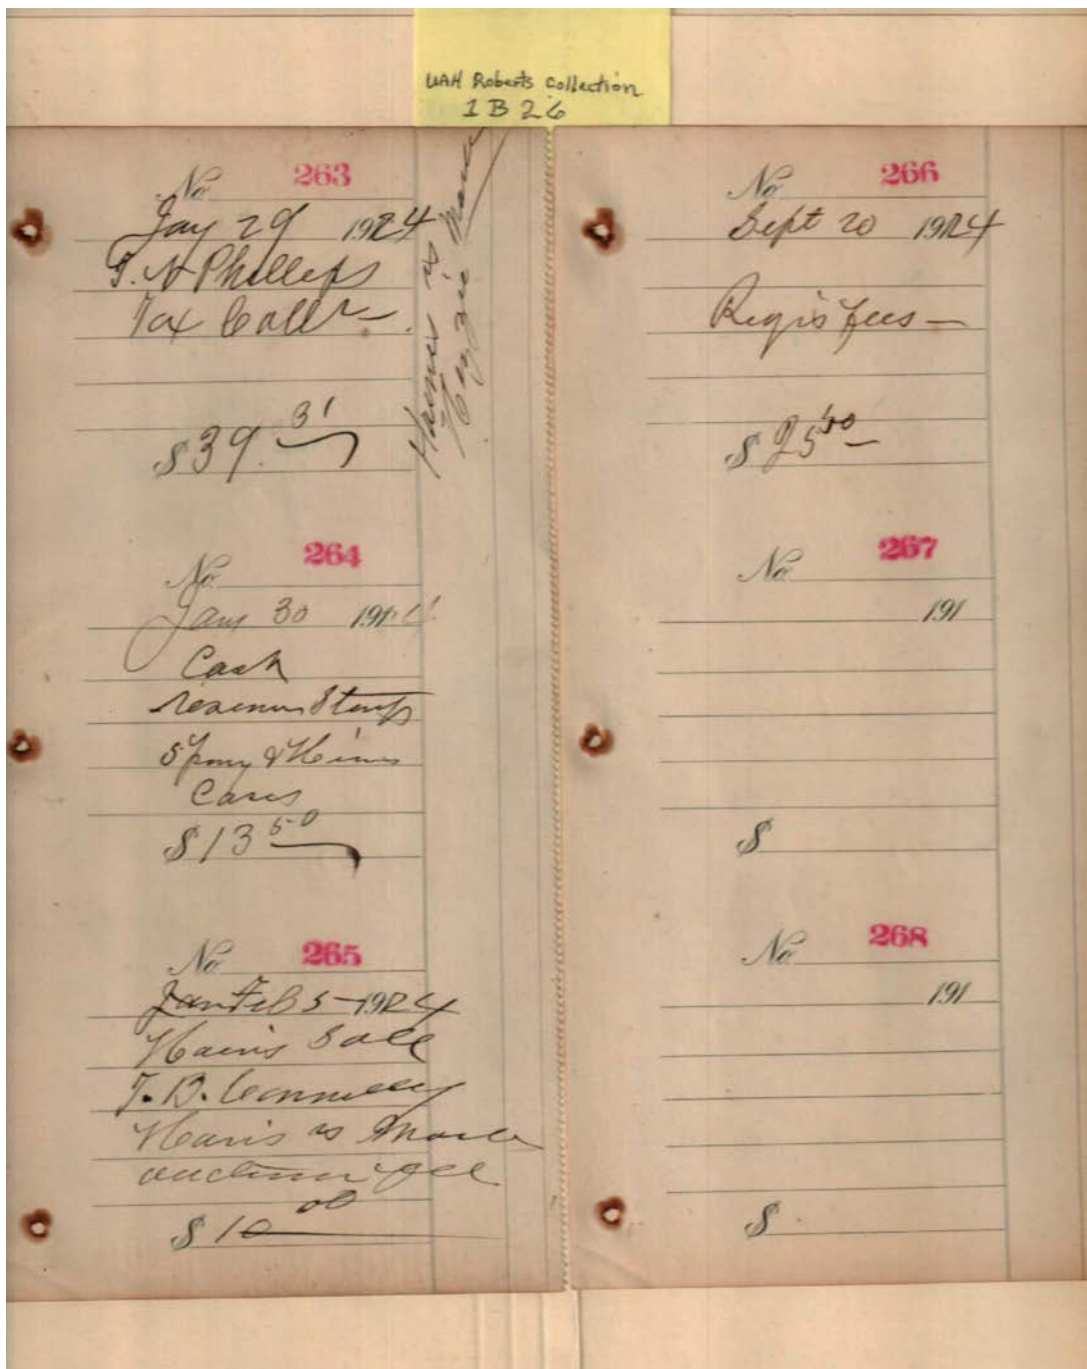 UAH Roberts Collection
1B26
No 263
Jay 29 1924
T. N Phillips
Tax Coll
$39.31
No 264
Jany 30 1924
Cash
revenue Stamps
Cases
$13 50
No 265
Jan Feb 5 - 1924
Hains Sale
T. B. Connelly
Haris vs
auction fee
$10 00
No 266
Sept 20 1924
Regis fees —
$25 50
No 267
191
$
No 268
191
$